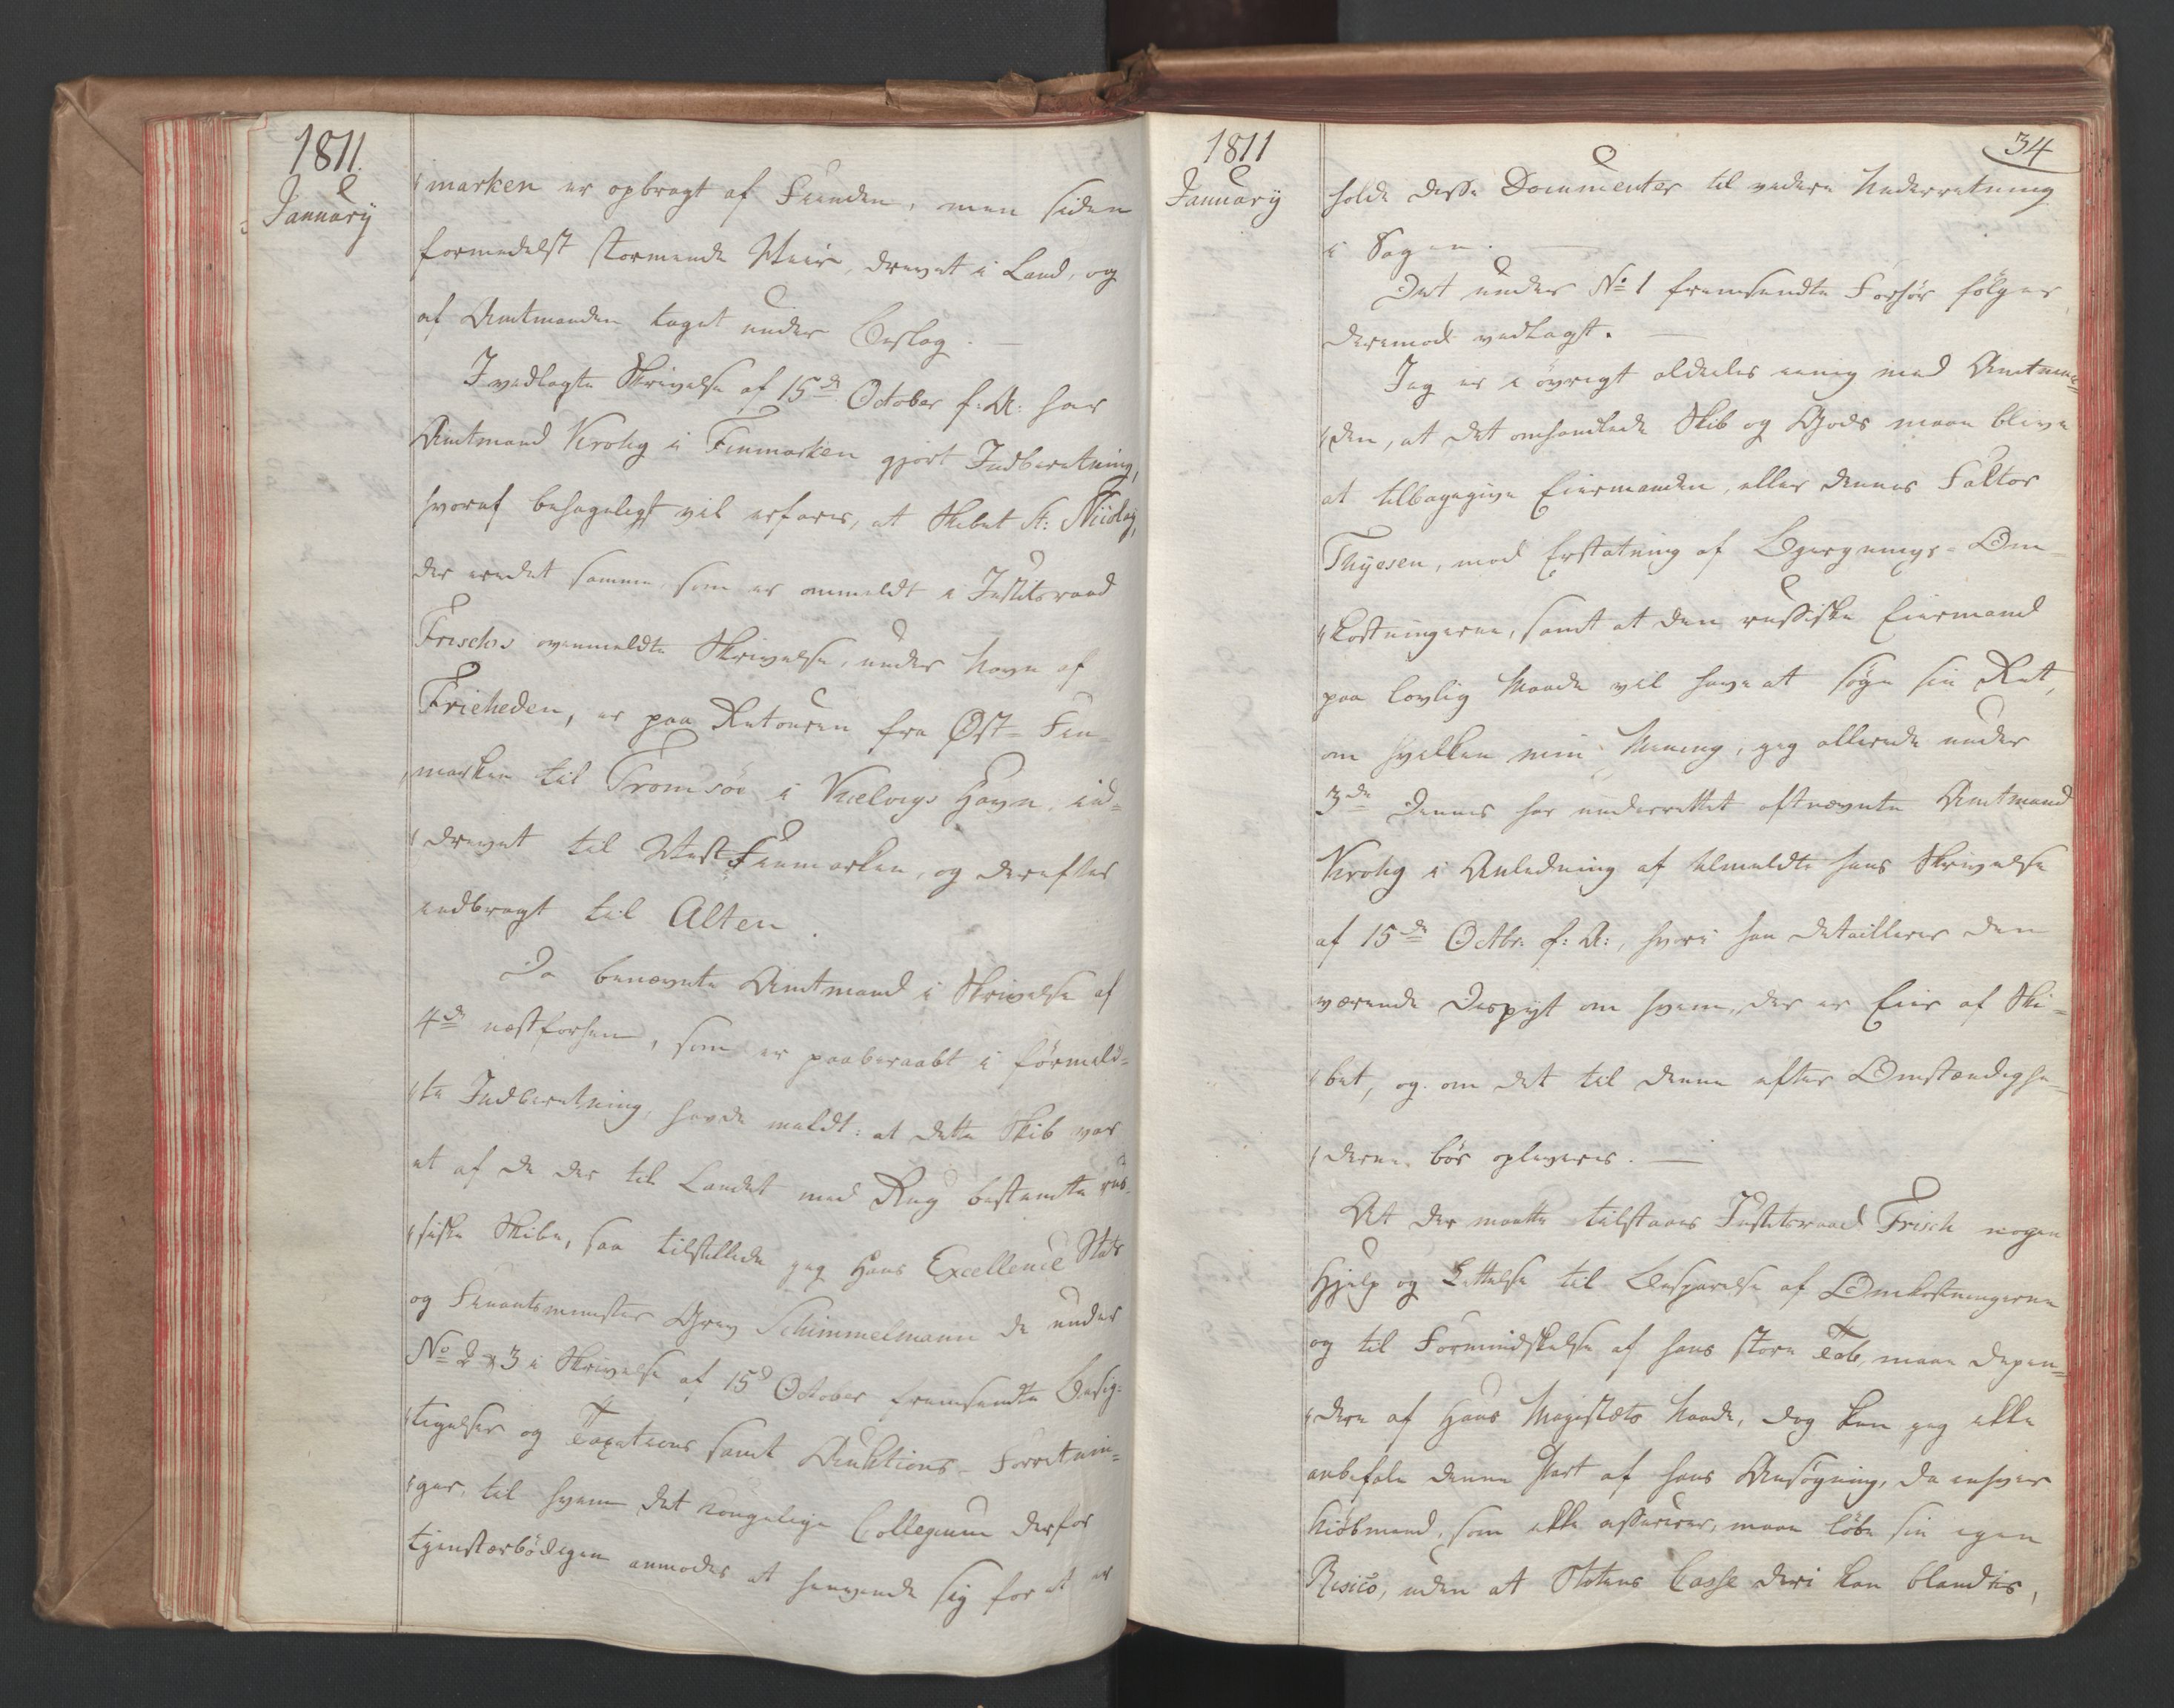 1811.
January
marken er opbragt af Fienden, men siden
formedelst stormende Veir, drevet i Land, og
af Amtmanden taget under Beslag. —
I vedlagte Skrivelse af 15de October f: A: har
Amtmand Krohg i Finmarken gjort Indberetning,
hvoraf behageligst vil erfares, at Skibet St: Nicolay,
der er det samme, som er ommeldt i Justitsraad
Frischs ovenmeldte Skrivelse, under Navn af
Frieheden, er paa Retouren fra Øst-Fin-
marken til Tromsöe i Kielvigs Havn, ind-
drevet til Vest Finmarken, og derefter
indbragt til Alten.
Da benævnte Amtmand i Skrivelse af
4de næstforhen, som er paaberaabt i förmeld-
te Indberetning, havde meldt: at dette Skib var
et af de der til Landet med Rug bestemte rus-
siske Skibe, saa tilstillede jeg Hans Excellence Stats
og Finantsminister Grev Schimmelmann de under
No 2 & 3 i Skrivelse af 15d October fremsendte Besig-
tigelses og Taxations samt Auktions-Forretnin-
ger, til hvem det kongelige Collegium derfor
tjenstærbödigen anmodes at henvende sig for at er
1811
January
34
holde disse Documenter til videre Underretning
i Sagen. —
Det under No 1 fremsendte Forhör fölger
derimod vedlagt. —
Jeg er i övrigt aldeles enig med Amtman-
den, at det omhandlede Skib og Gods maae blive
at tilbagegive Eiermanden, eller dennes Faktor
Thyesen, mod Erstatning af Bjergnings-Om-
kostningerne, samt at den russiske Eiermand
paa lovlig Maade vil have at søge sin Ret,
om hvilken min Mening, jeg allerede under
3de dennes har underrettet oftnævnte Amtmand
Krohg i Anledning af tilmeldte hans Skrivelse
af 15de Octbr: f: A:, hvori han detaillerer den
værende Dispyt om hvem, der er Eier af Ski-
bet, og om det til denne efter Omstændighe-
derne bör opleveres. —
At der maatte tilstaaes Justitsraad Frisch nogen
Hjelp og Lettelse til Besparelse af Omkostningerne
og til Formindskelse af hans store Tab, maae depen-
dere af Hans Majestæts Naade, dog kan jeg ikke
anbefale denne Part af hans Ansøgning, da enhver
Kiöbmand, som ikke assurerer, maae löbe sin egen
Risico, uden at Statens Casse deri kan blandes,